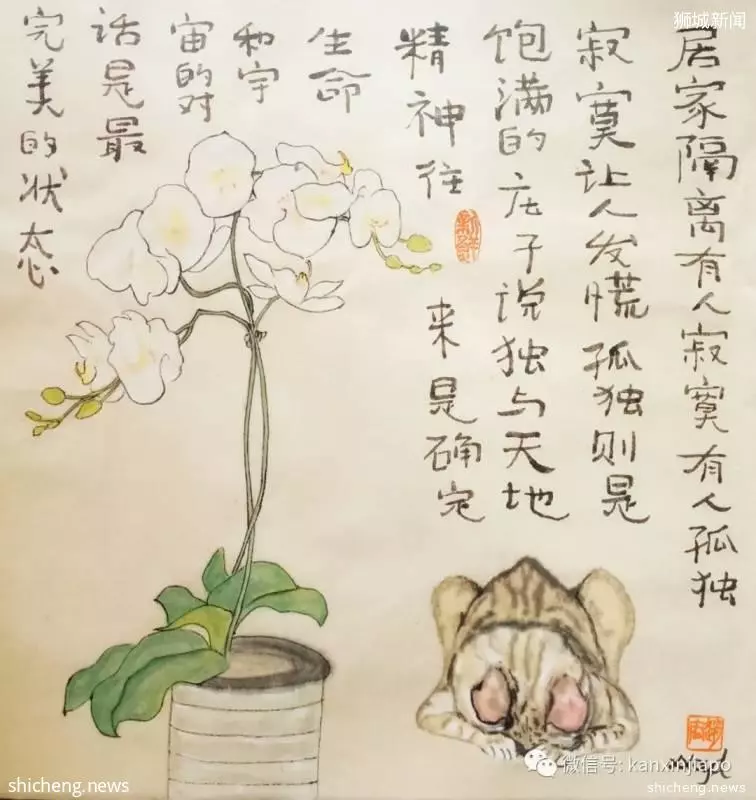 狮城新闻
居家隔离有人寂寞有人孤独
寂寞让人发慌孤独则是
饱满的庄子说独与天地
精神往来是确定
生命
和宇
宙的对
话是最
完美的状态
微信号: kanxinjiapo
shicheng.news
shicheng.news